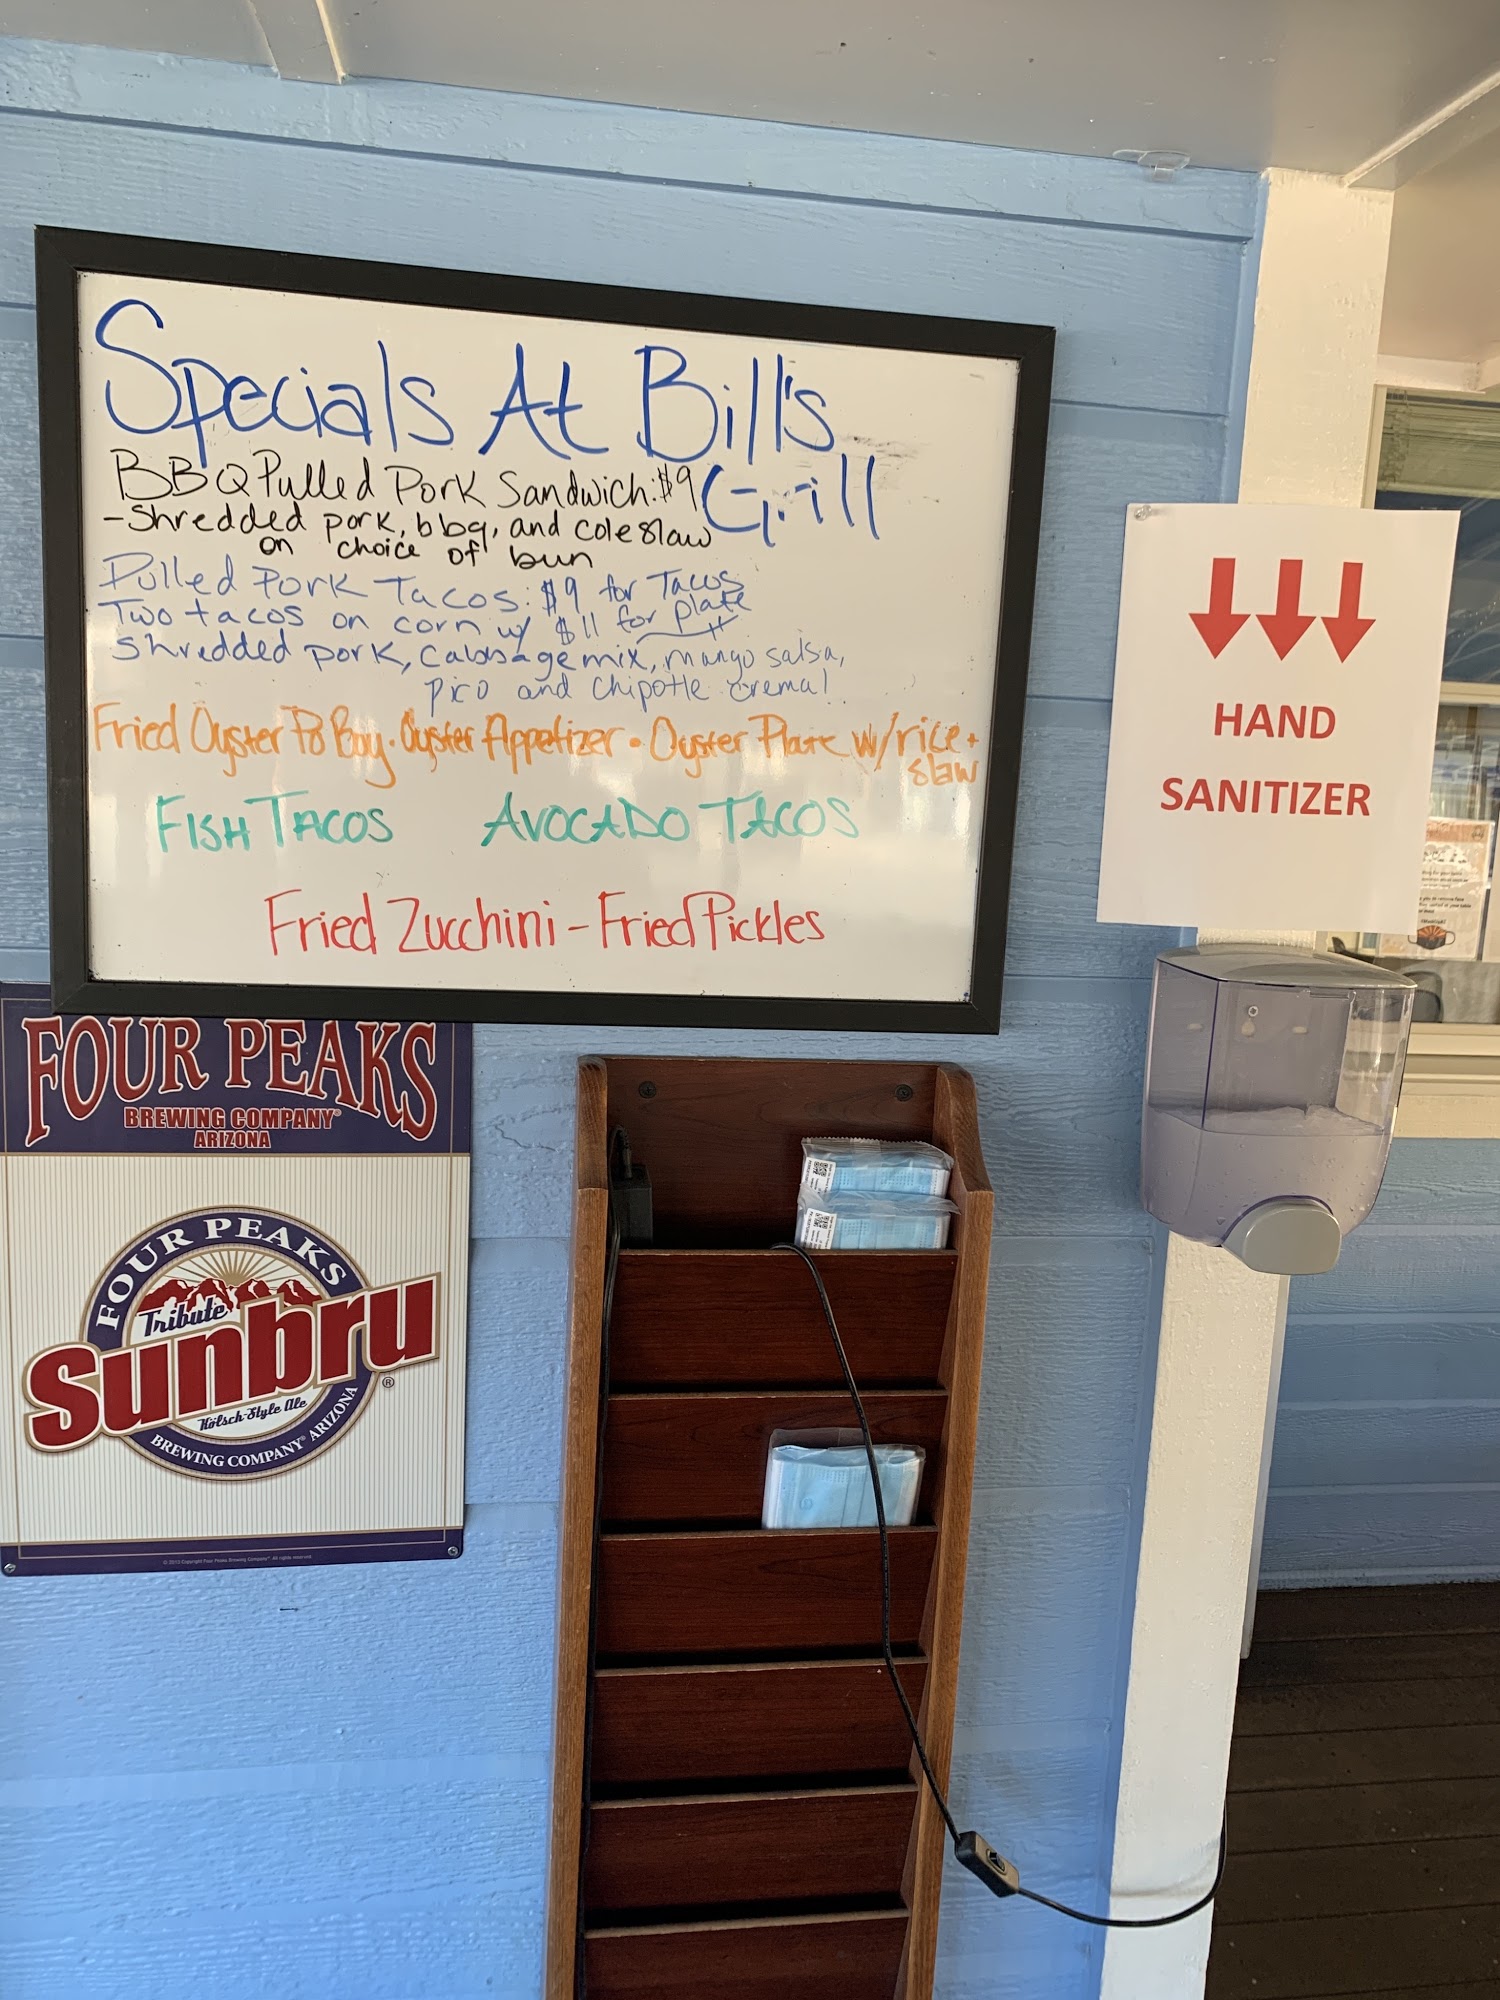 Specials At Bill's
Grill
BBQ Pulled Pork Sandwich: $9
- Shredded pork, bbq, and coleslaw
on choice of bun
Pulled Pork Tacos: $9 for Tacos
Two tacos on corn w/ $11 for plate
Shredded pork, Cabbage mix, mango salsa,
pico and chipotle crema!
Fried Oyster Po Boy • Oyster Appetizer • Oyster Plate w/rice +
slaw
FISH TACOS AVOCADO TACOS
Fried Zucchini - Fried Pickles
HAND
SANITIZER
FOUR PEAKS
BREWING COMPANY®
ARIZONA
FOUR PEAKS
Tribute
Sunbru®
Kölsch-Style Ale
BREWING COMPANY® ARIZONA